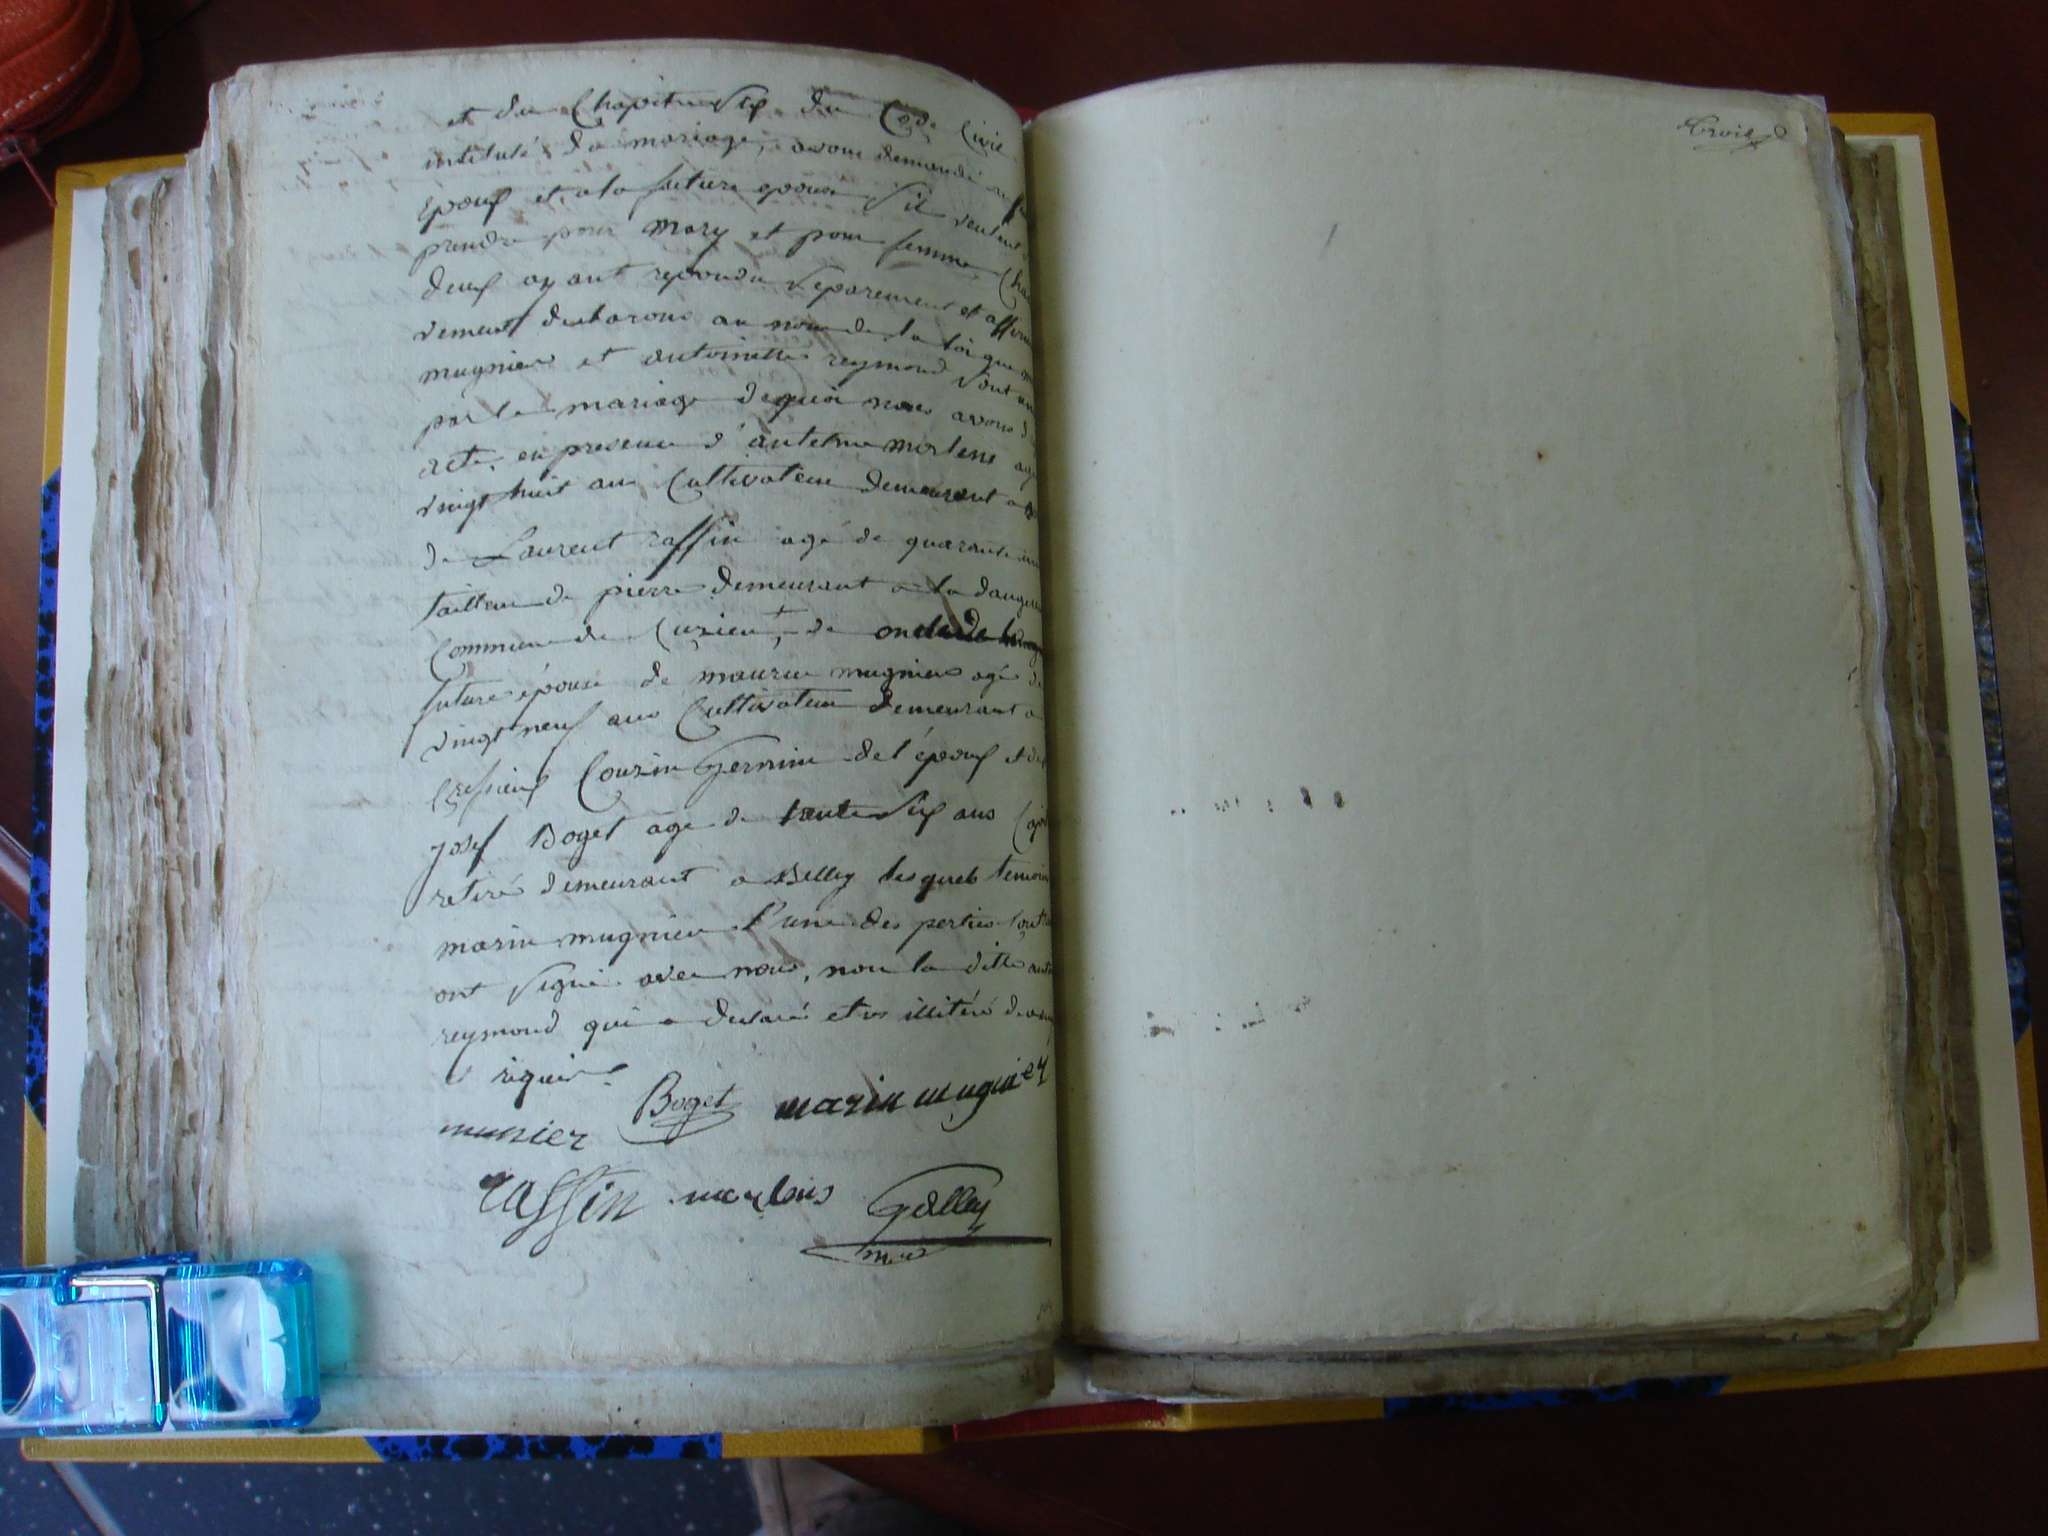 et du Chapitre six du Code Civil
intitulé du mariage, avons demandé au
epoux et a la future epouse s'il veulent
prendre pour mary et pour femme,
deux ayant repondu separement et
vement declarons au nom de la loi que
mugnier et antoinette reymond sont
par le mariage de quoi nous avons
acte, en presence d'antelme morlens
vingt huit ans Cultivateur demeurant a
de Laurent raffin agé de quarante
tailleur de pierre demeurant a la
Commune de Cuzieu + de oncle de la
future épouse de maurice mugnier agé de
vingt neuf ans Cultivateur demeurant a
Cressieux Couzin Germin de l'époux et de
josef Boget age de trente six ans
retiré demeurant a Belley lesquels
marin mugnier l'une des parties
ont signé avec nous, non la ditte
reymond qui a declaré etre illitéré
signé.
Boget marin mugnier
munier
raffin